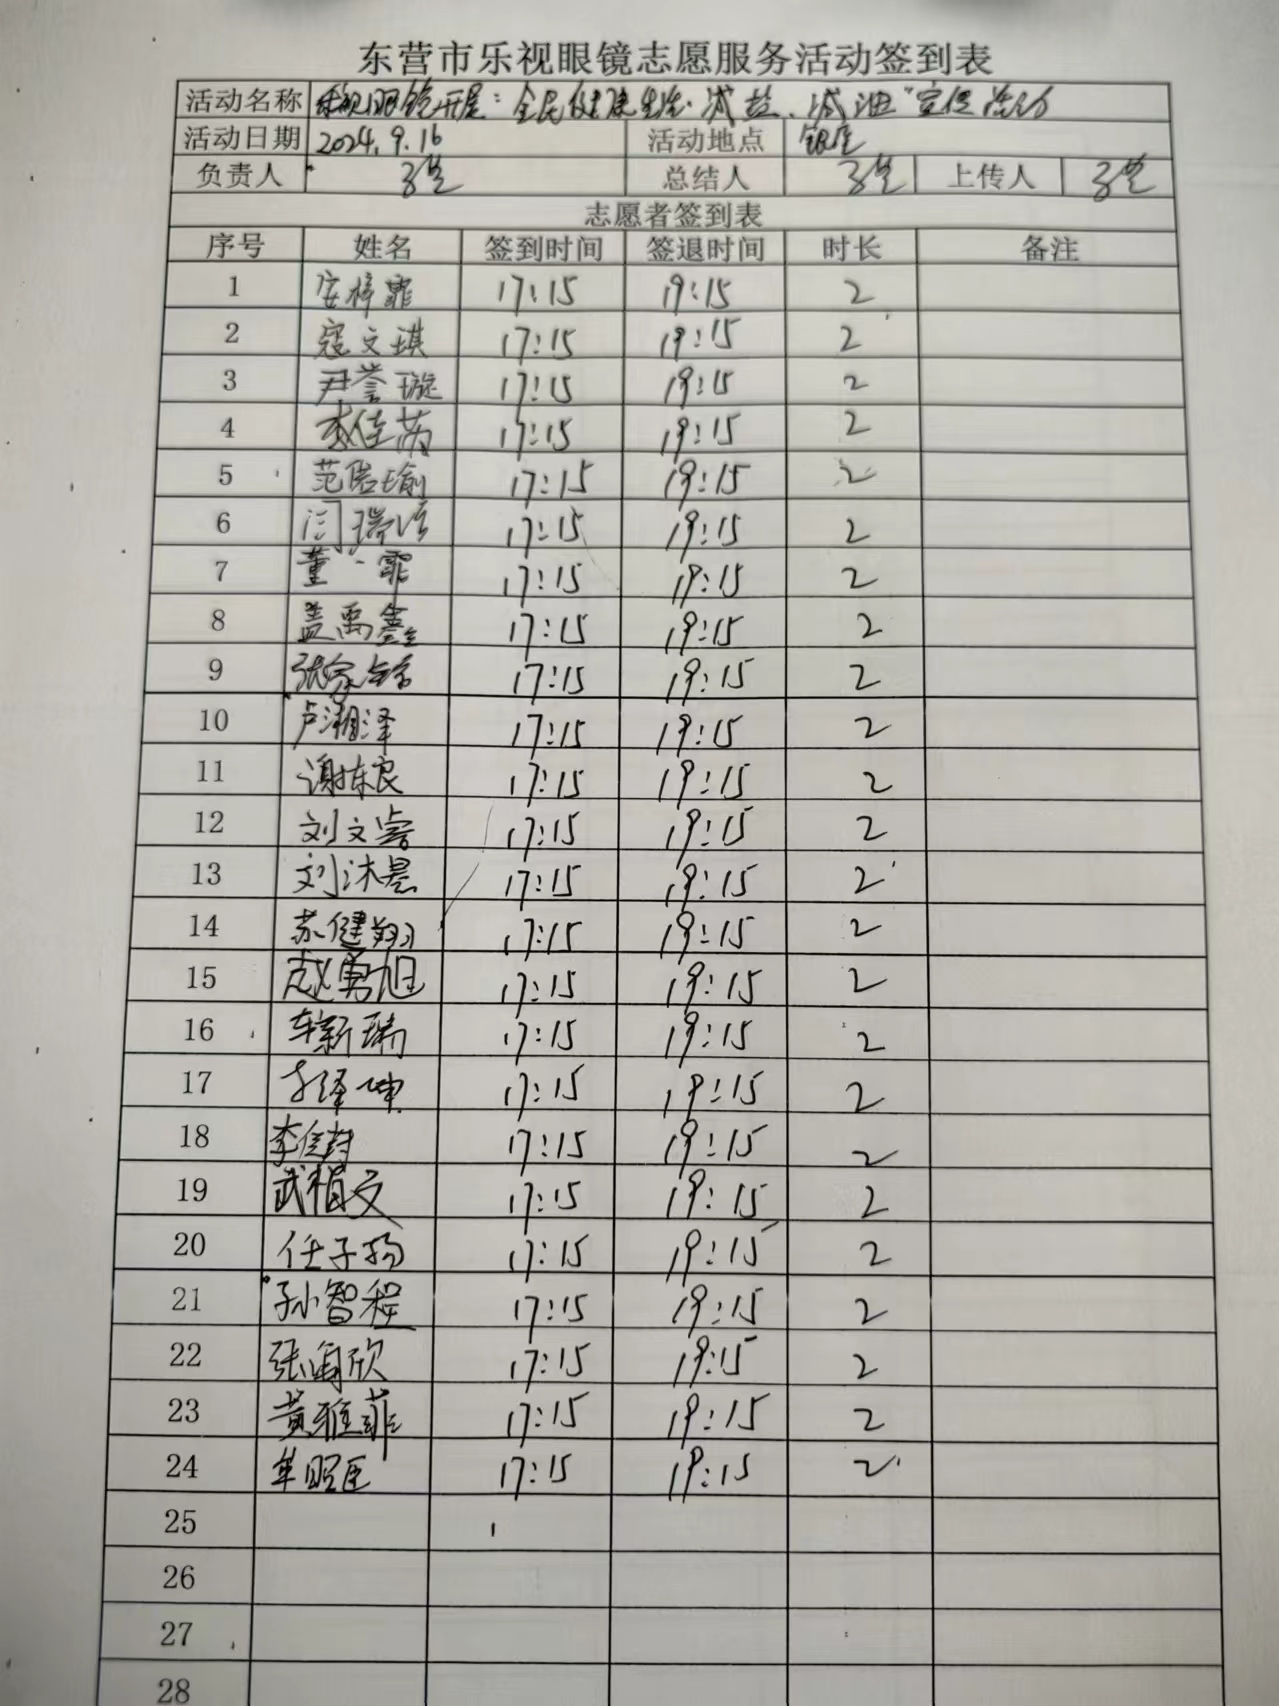 东营市乐视眼镜志愿服务活动签到表
活动名称 乐视眼镜开展:全民健康生活·减盐、减油"宣传活动
活动日期 2024.9.16 活动地点 银座
负责人 总结人 上传人
志愿者签到表
序号 姓名 签到时间 签退时间 时长 备注
1 安梓霏 17:15 19:15 2
2 寇文琪 17:15 19:15 2
3 尹誉璇 17:15 19:15 2
4 李佳芮 17:15 19:15 2
5 范偌瑜 17:15 19:15 2
6 闫瑞 17:15 19:15 2
7 董一霏 17:15 19:15 2
8 盖禹鑫 17:15 19:15 2
9 张家铭 17:15 19:15 2
10 卢湘泽 17:15 19:15 2
11 谢东良 17:15 19:15 2
12 刘文睿 17:15 19:15 2
13 刘沐晨 17:15 19:15 2
14 苏健翔 17:15 19:15 2
15 赵勇旭 17:15 19:15 2
16 车新瑞 17:15 19:15 2
17 李泽坤 17:15 19:15 2
18 李 17:15 19:15 2
19 武桢文 17:15 19:15 2
20 任子扬 17:15 19:15 2
21 孙智程 17:15 19:15 2
22 张甯欣 17:15 19:15 2
23 黄雅菲 17:15 19:15 2
24 牟昭臣 17:15 19:15 2
25
26
27
28